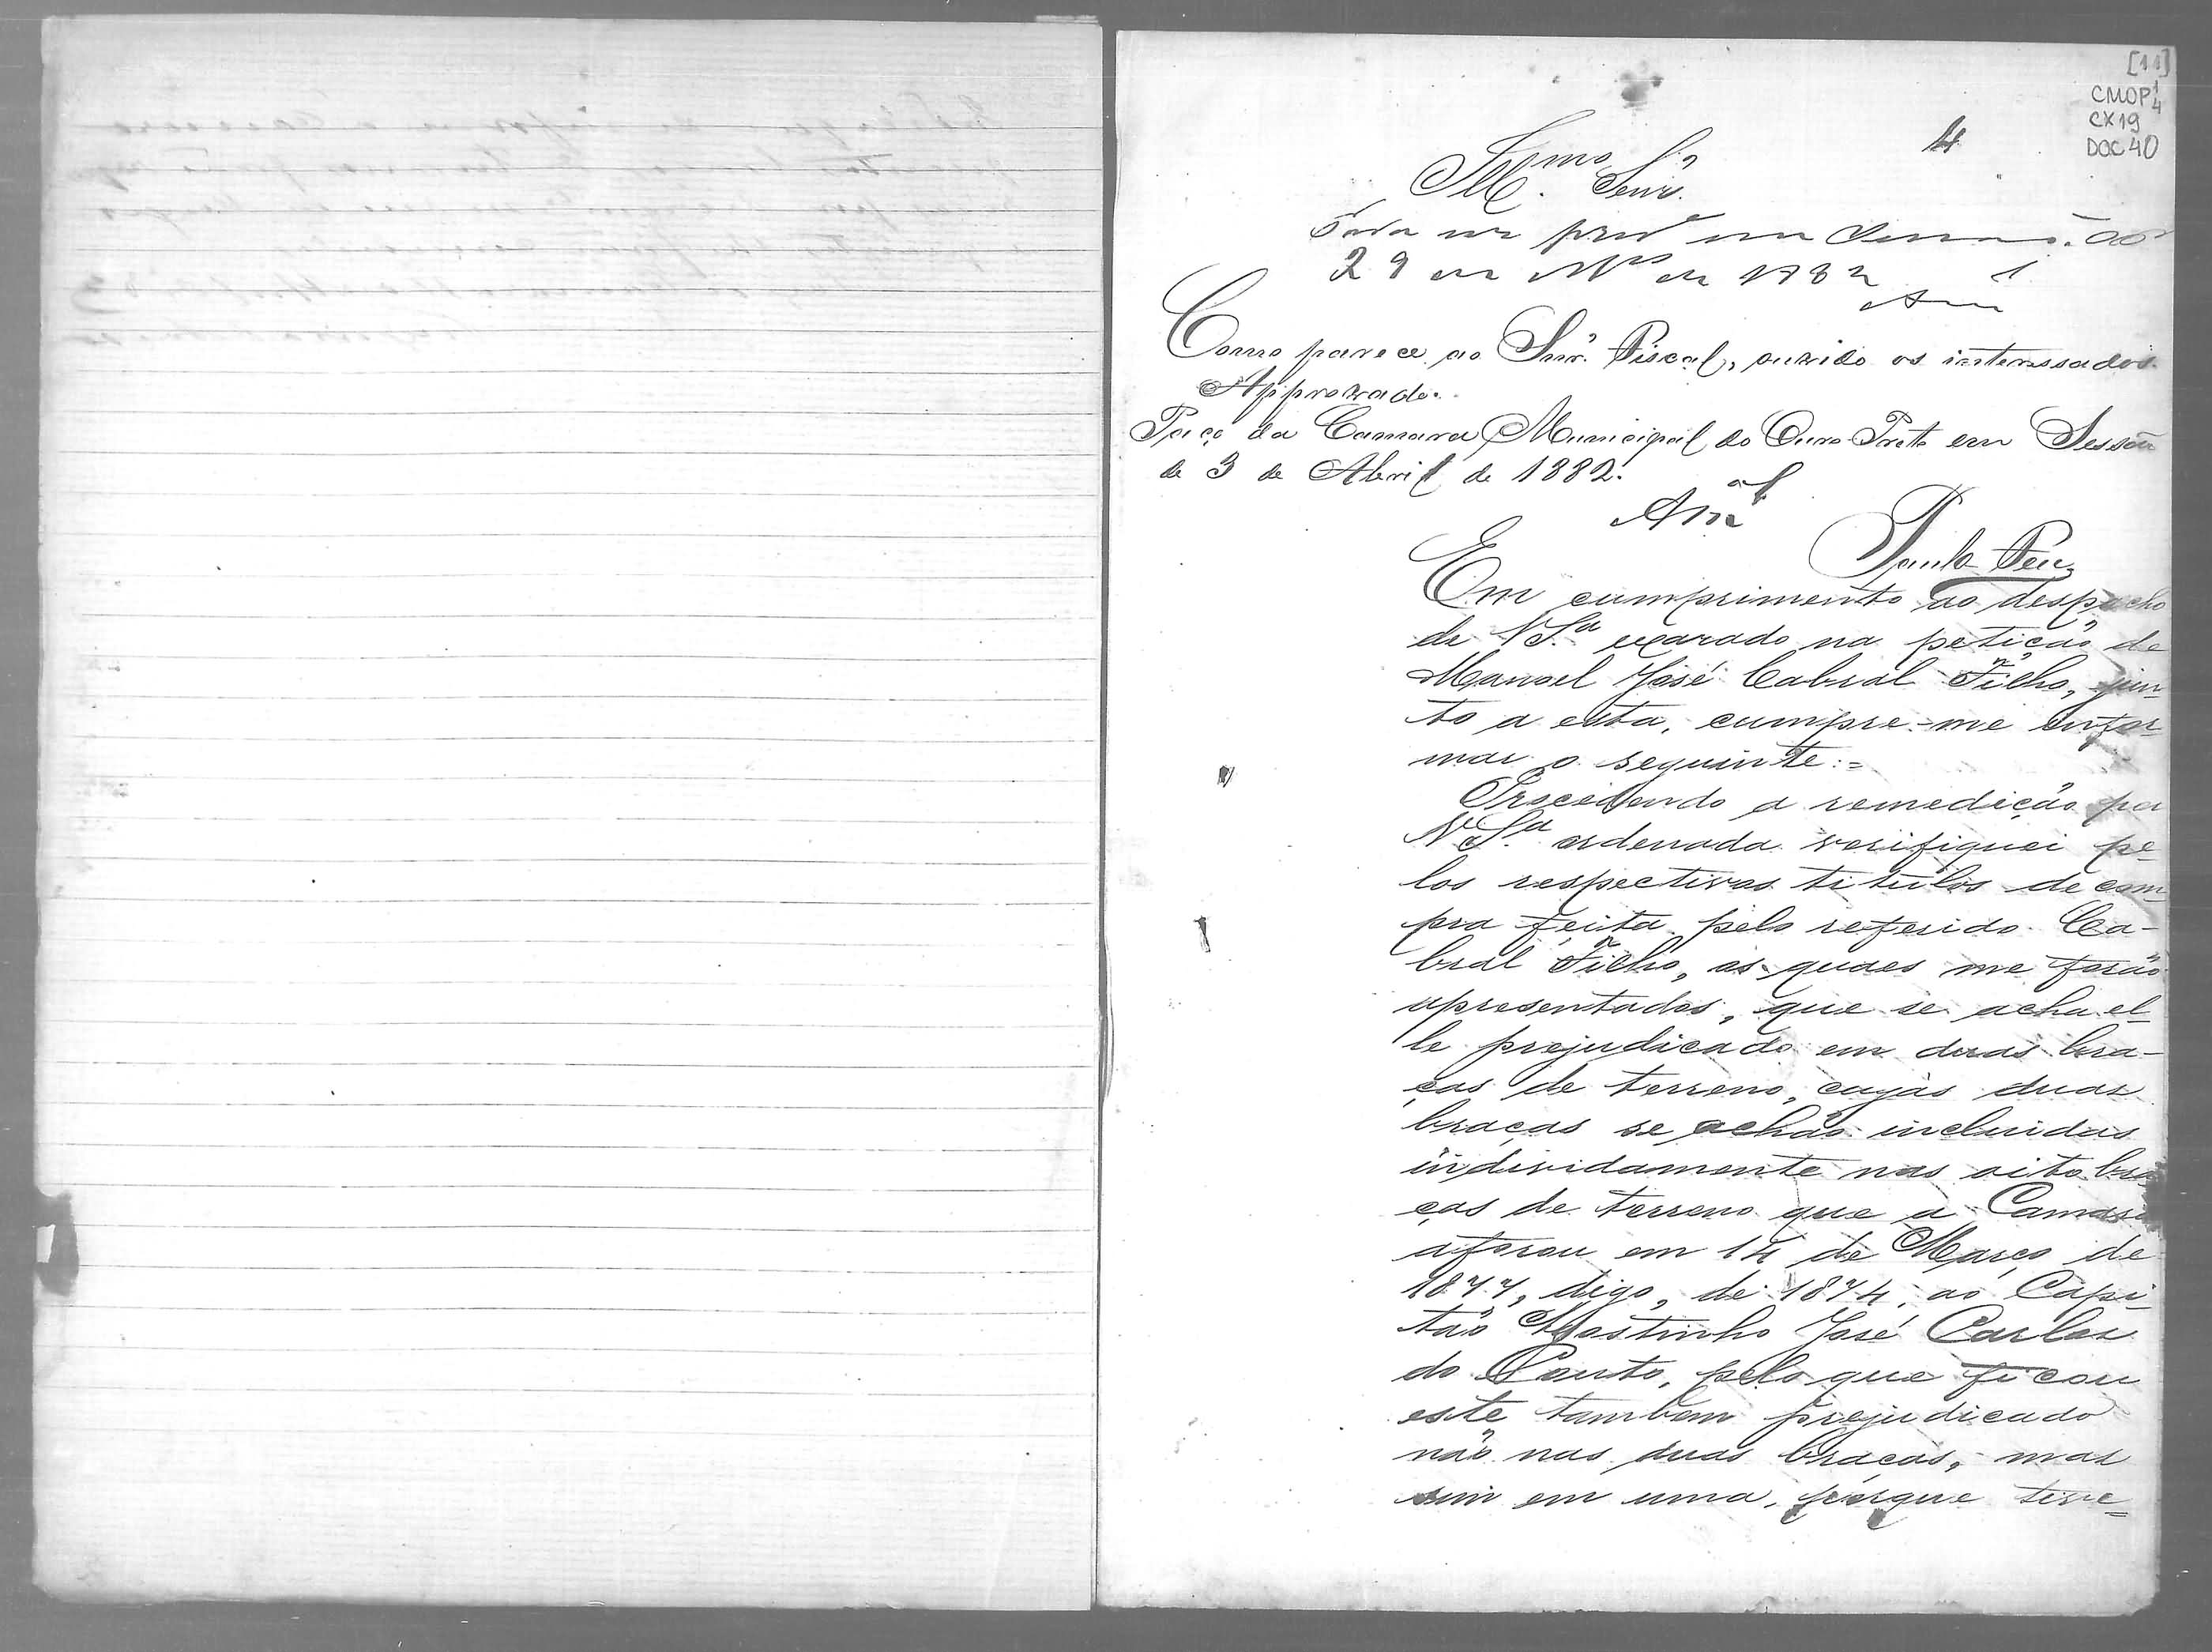 [11]
CMOP 1/4
CX19
DOC 40
4
Ill.mo Senr.
29 de Mço de 1882
Como parece ao Snr. Fiscal, ouvido os interessados.
Approvado.
Paço da Camara Municipal do Ouro Preto em Sessão
de 3 de Abril de 1882.
Paulo Feu
Em cumprimento ao despacho
de V S.a exarado na petição de
Manoel José Cabral Filho, jun-
to a esta, cumpre-me infor-
mar o seguinte:=
Procedendo a remedição por
V S.a ordenada verifiquei pe-
los respectivos titulos de com-
pra feita pelo referido Ca-
bral Filho, os quaes me forão
apresentados, que se acha el-
le prejudicado em duas bra-
ças de terreno, cujas duas
braças se achão incluidas
individamente nas oito bra-
ças de terreno que a Camara
aforou em 14 de Março de
1877, digo, de 1874, ao Capi-
tão Agostinho José Carlos
do Couto, pelo que ficou
este tambem prejudicado
não nas duas braças, mas
sim em uma, porque tive=